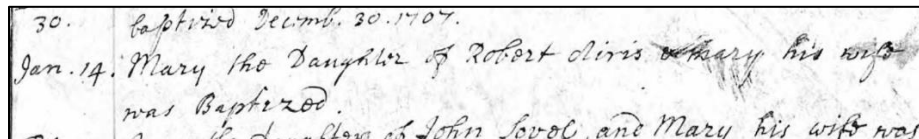 30. baptized Decemb. 30. 1707.
Jan. 14. Mary the Daughter of Robert & Mary his wife
was Baptized.
the Daughter of John Lovel and Mary his wife was